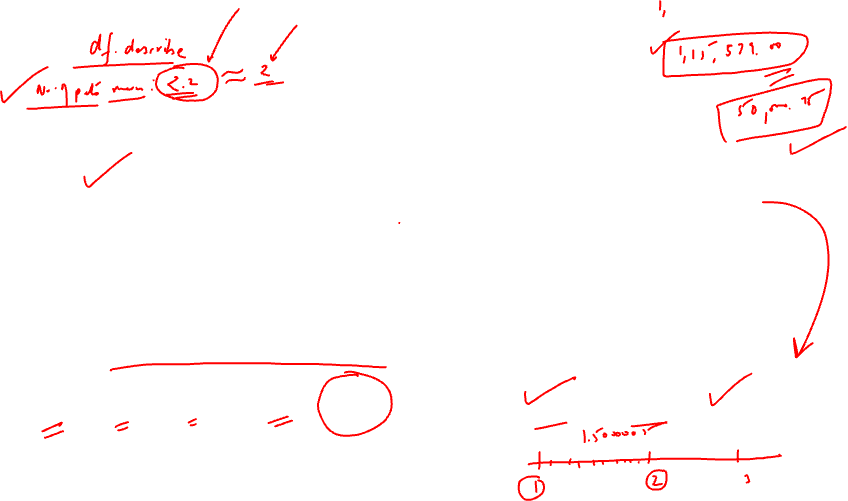 df. describe
No. of pets mean : 2.2 ≈ 2
1,
1,15,579.00
50,000.75
1.50000075
1 2 3